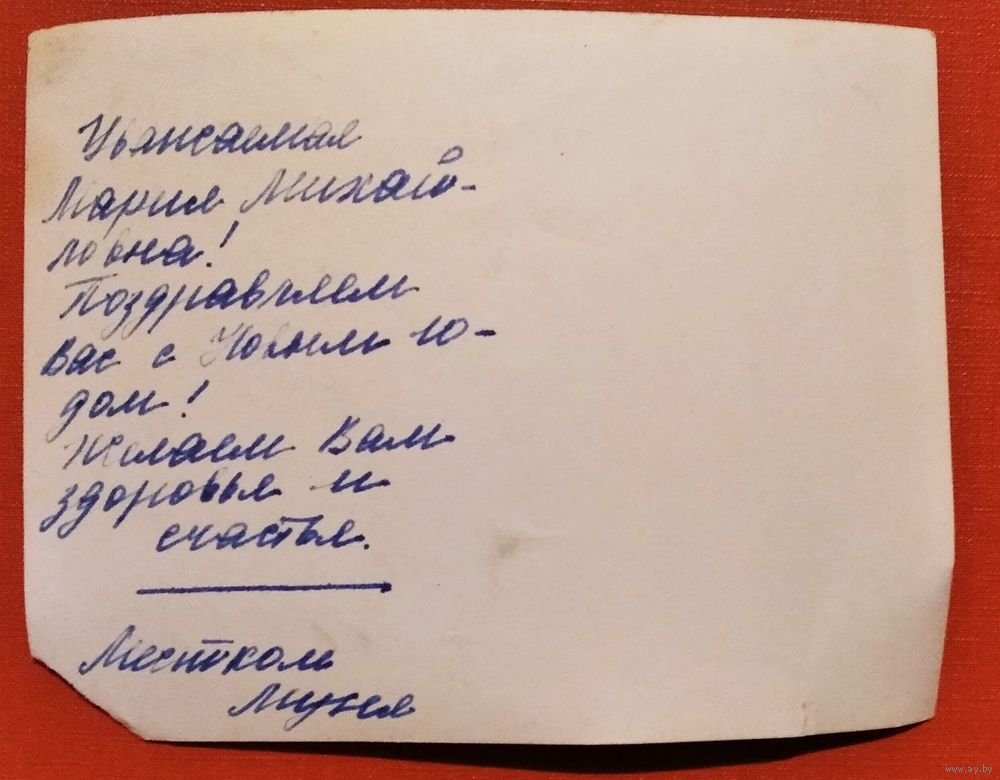 Уважаемая
Мария Михай-
ловна!
Поздравляем
Вас с Новым го-
дом!
Желаем Вам
здоровья и
счастья.
Местком
www.ay.by